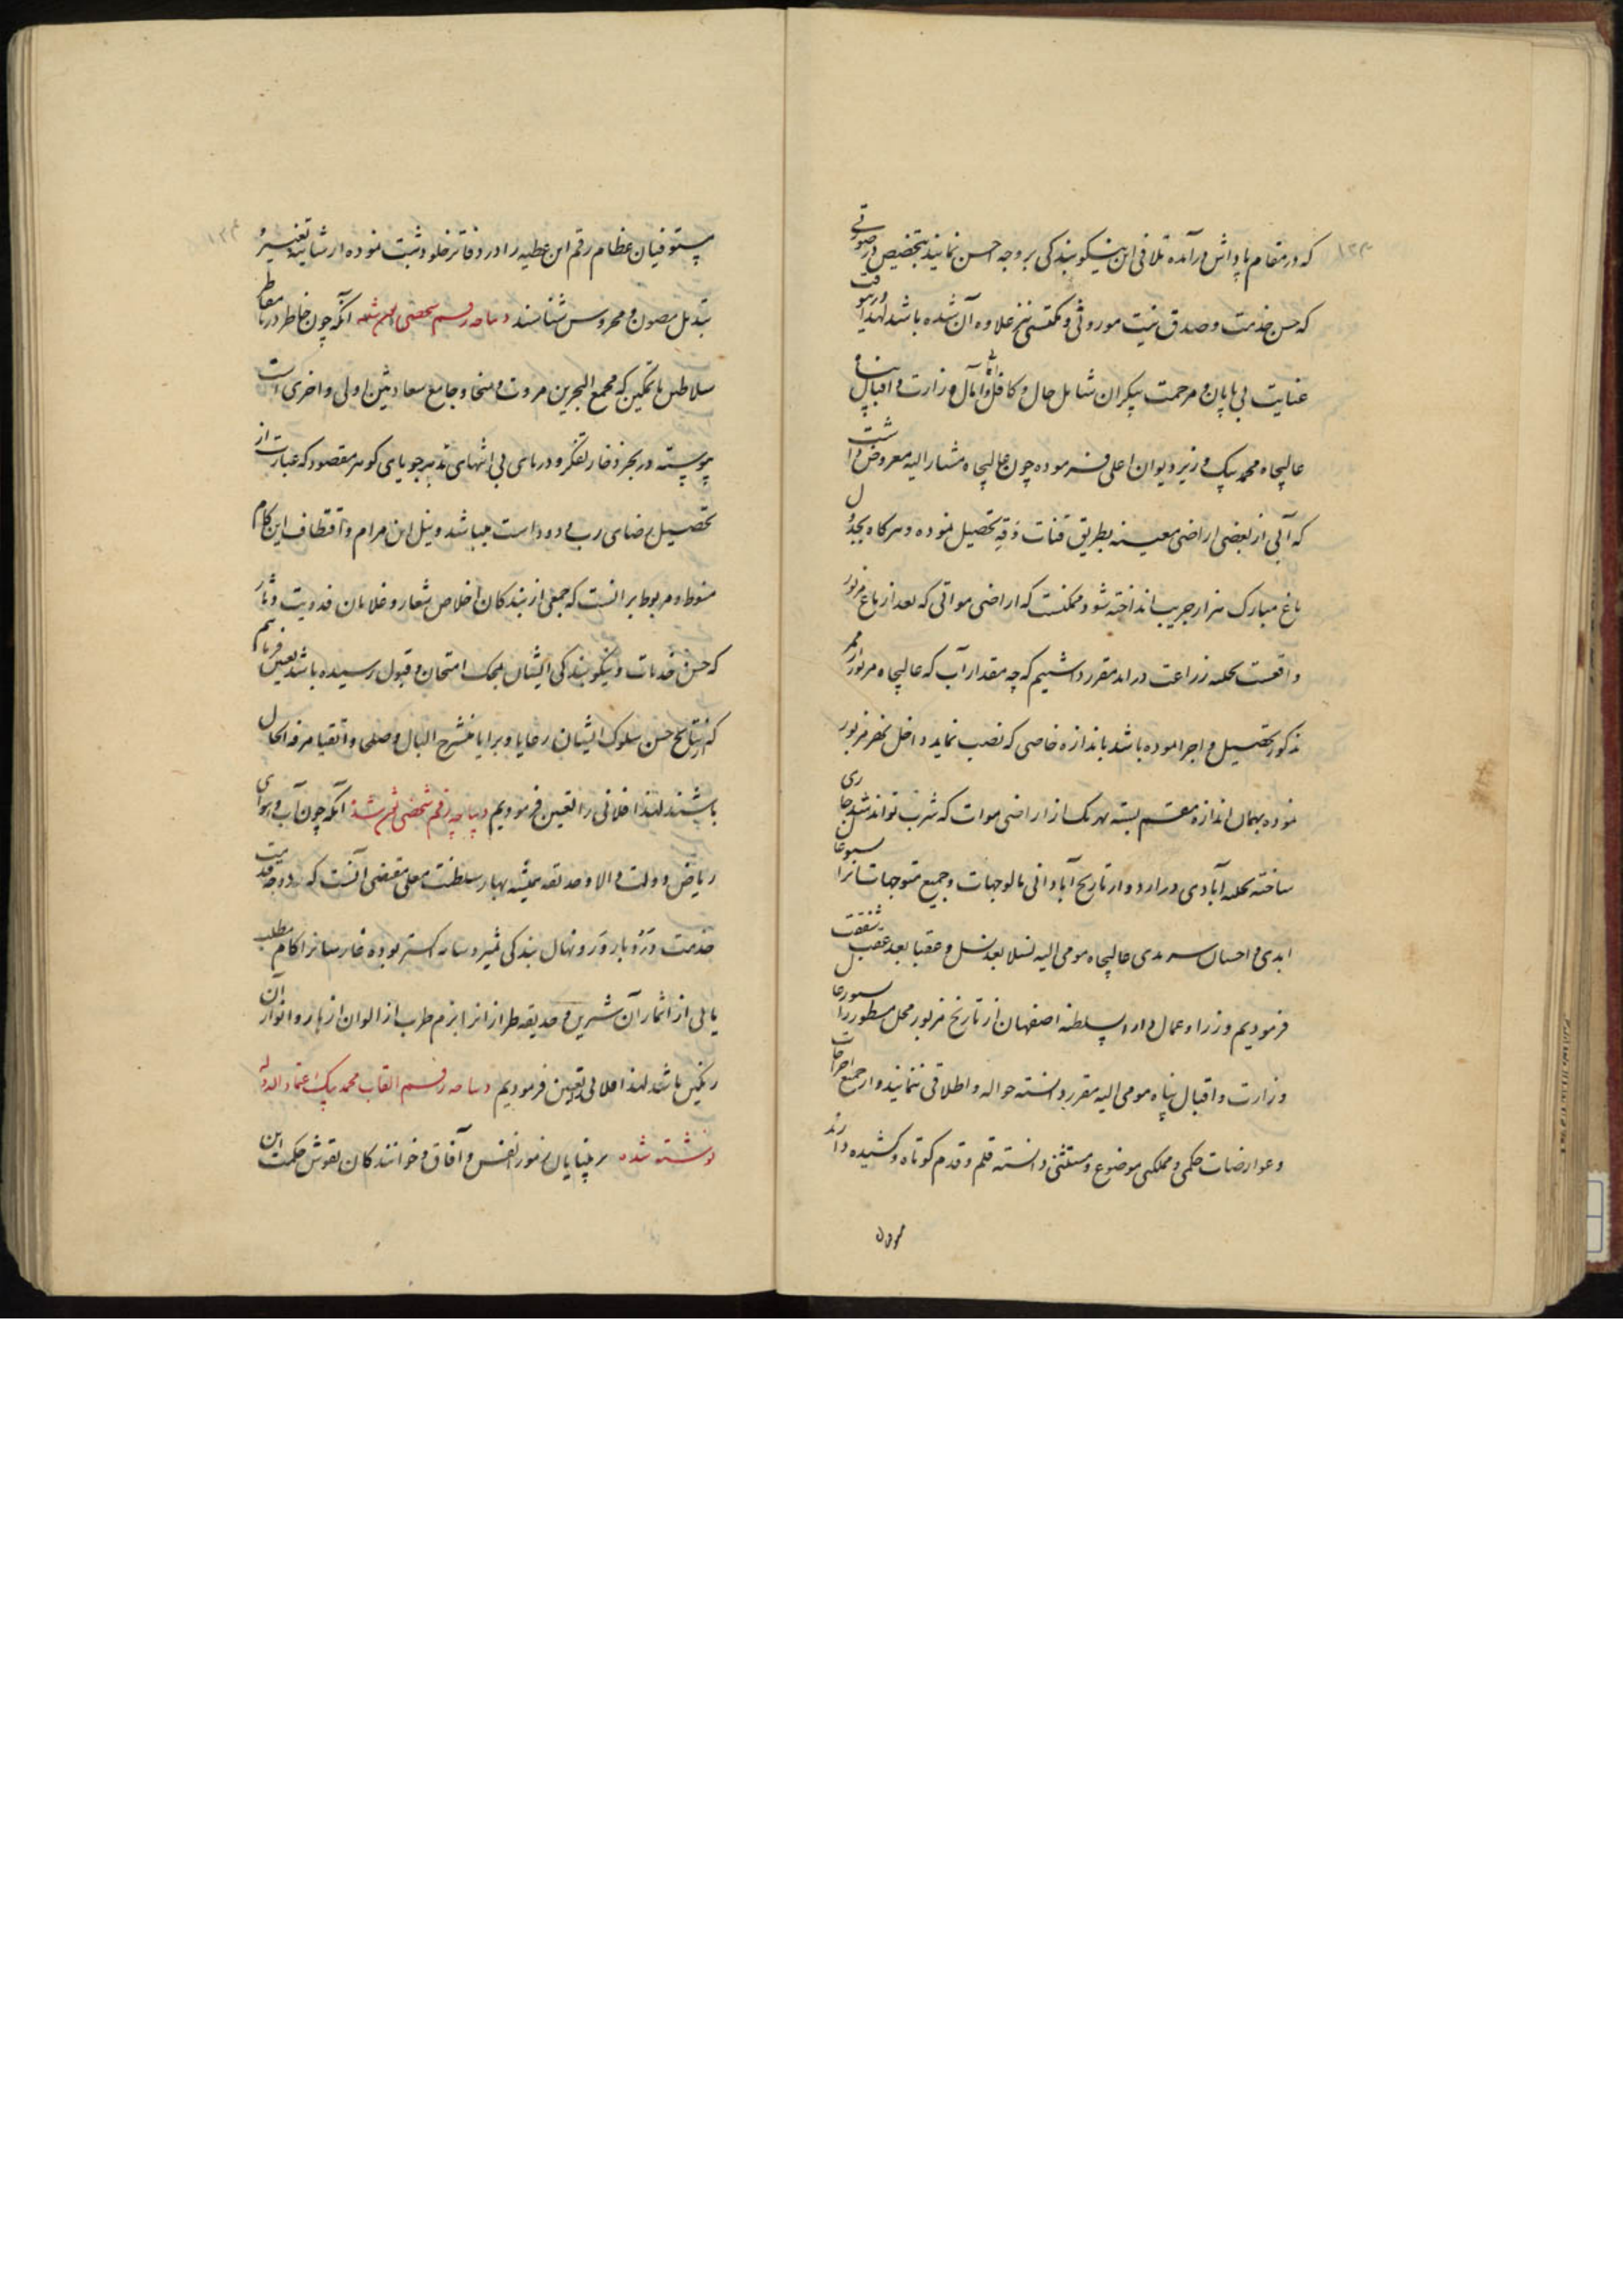 که در مقام پاداش درآمده تلافی این نیکو بندگی بر وجه احسن نمایند بتخصیص در صورتی
که حسن خدمت و صدق نیت موروثی و مکتسبی نیز علاوه آن شده باشد لهذا درینوقت
عنایت بی پایان و مرحمت بیکران شامل حال و کافل امانی و آمال وزارت و اقبال پناه
عالیجاه محمد بیک وزیر دیوان اعلی فرموده چون عالیجاه مشارالیه معروض داشت
که آبی از بعضی اراضی معینه بطریق قنات و غیره تحصیل نموده و هرگاه بجدول
باغ مبارک هزار جریب انداخته شود ممکنست که اراضی مواتی که بعد از باغ مزبور
واقعست بحلیه زراعت دراید مقرر داشتیم که چه مقدار آب که عالیجاه مزبور از ممر
مذکور تحصیل و اجرا نموده باشد باندازه خاصی که نصب نماید داخل نهر مزبور
نموده بهمان اندازه مقسم بسته بهر یک از اراضی موات که شرب تواند شد جاری
ساخته بحلیه آبادی درارد و از تاریخ آبادانی مالوجهات و جمیع متوجهات انرا بسیورغال
ابدی و احسان سرمدی عالیجاه مومی الیه نسلا بعد نسل و عقبا بعد عقب شفقت
فرمودیم وزرا و عمال دار السلطنه اصفهان از تاریخ مزبور محل مسطور را بسیورغال
وزارت و اقبال پناه مومی الیه مقرر دانسته حواله و اطلاقی ننمایند و از جمیع اخراجات
و عوارضات حکمی و مملکتی موضوع و مستثنی دانسته قلم و قدم کوتاه و کشیده دارند
مستوفیان عظام رقم این عطیه را در دفاتر خلود ثبت نموده از شایبه تغییر و
تبدیل مصون و محروس شناسند دیباچه رقم شخصی نوشته شده انکه چون خاطر دریا مقاطر
سلاطین با تمکین که مجمع البحرین مروت و سخا و جامع سعادتین اولی و اخری است
پیوسته در بحر ذخار تفکر و دریای بی انتهای تدبیر جویای گوهر مقصود که عبارت از
تحصیل رضای رب ودود است میباشد و نیل این مرام و اقتطاف این کام
منوط و مربوط برانست که جمعی از بندگان اخلاص شعار و غلامان فدویت دثار
که حسن خدمات و نیکو بندگی ایشان بمحک امتحان و قبول رسیده باشد تعیین فرمایم
که از نتایج حسن سلوک ایشان رعایا و برایا منشرح البال و صلحا و اتقیا مرفه الحال
باشند لهذا فلانی را تعیین فرمودیم دیباچه رقم شخصی نوشته شد انکه چون آب و هوای
ریاض دولت والا و حدیقه همیشه بهار سلطنت معلی مقتضی آنست که دوحه
خدمت هر یک بارور و نهال بندگی مثمر و سایه گستر بوده
یابی از اثمار آن شیرین و حدیقه طراز انرا بزم طرب از الوان ازهار و انوار آن
رنگین باشد لهذا فلانی را تعیین فرمودیم دیباچه رقم القاب محمد بیک اعتماد الدوله
نوشته شده بر بینایان رموز انفس و آفاق و خوانندگان نقوش حکمت این